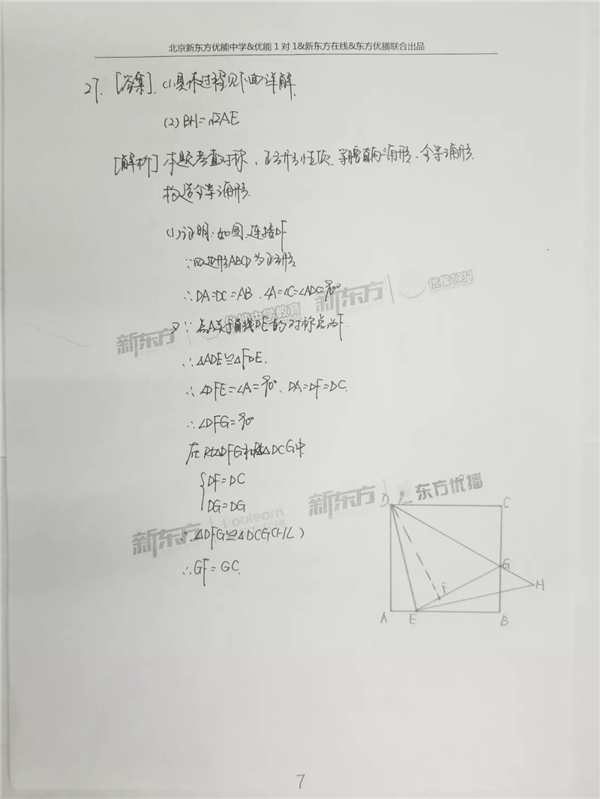 北京新东方优能中学&优能1对1&新东方在线&东方优播联合出品
27. [答案]. (1)具体过程见下面详解.
(2) BH=√2AE
[解析] 本题考查对称、正方形性质、等腰直角三角形、全等三角形.
构造全等三角形.
(1)证明:如图.连接DF
∵四边形ABCD为正方形
∴DA=DC=AB.∠A=∠C=∠ADC=90°
又∵点A关于直线DE的对称点为F.
∴△ADE≌△FDE.
∴∠DFE=∠A=90°.DA=DF=DC.
∴∠DFG=90°
在Rt△DFG和Rt△DCG中
DF=DC
DG=DG
∴△DFG≌△DCG(HL)
∴GF=GC.
D C
G
H
F
A E B
新东方 优能中学教育
新东方 优能1对1
新东方 Koolearn
新东方 东方优播
7